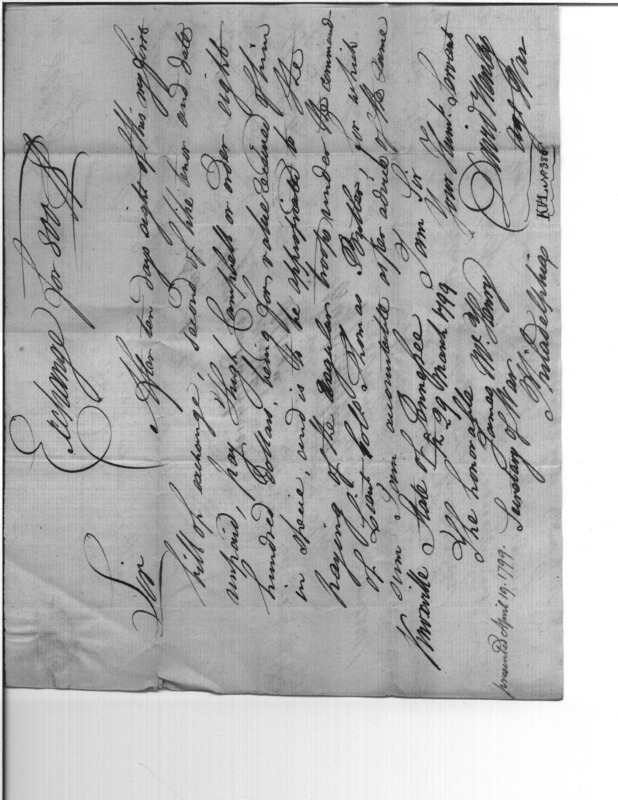 Exchange for 800 $
Sir
After ten days sight of this my first
bill of exchange, second of like tenor and date
unpaid, pay Hugh Campbell or order eight
hundred Dollars, being for value received of him
in specie, and is to be appropriated to the
paying of the regular troops under the command
of Lieut Colo. Thomas Butler, for which
sum I am accountable as per advice of the same
Knoxville State of Tennessee I am Sir
29 March 1799 Your Humb. Servant
The honorable David Henley
James McHenry Agt War
Secretary of War
Philadelphia
presented April 19. 1799.